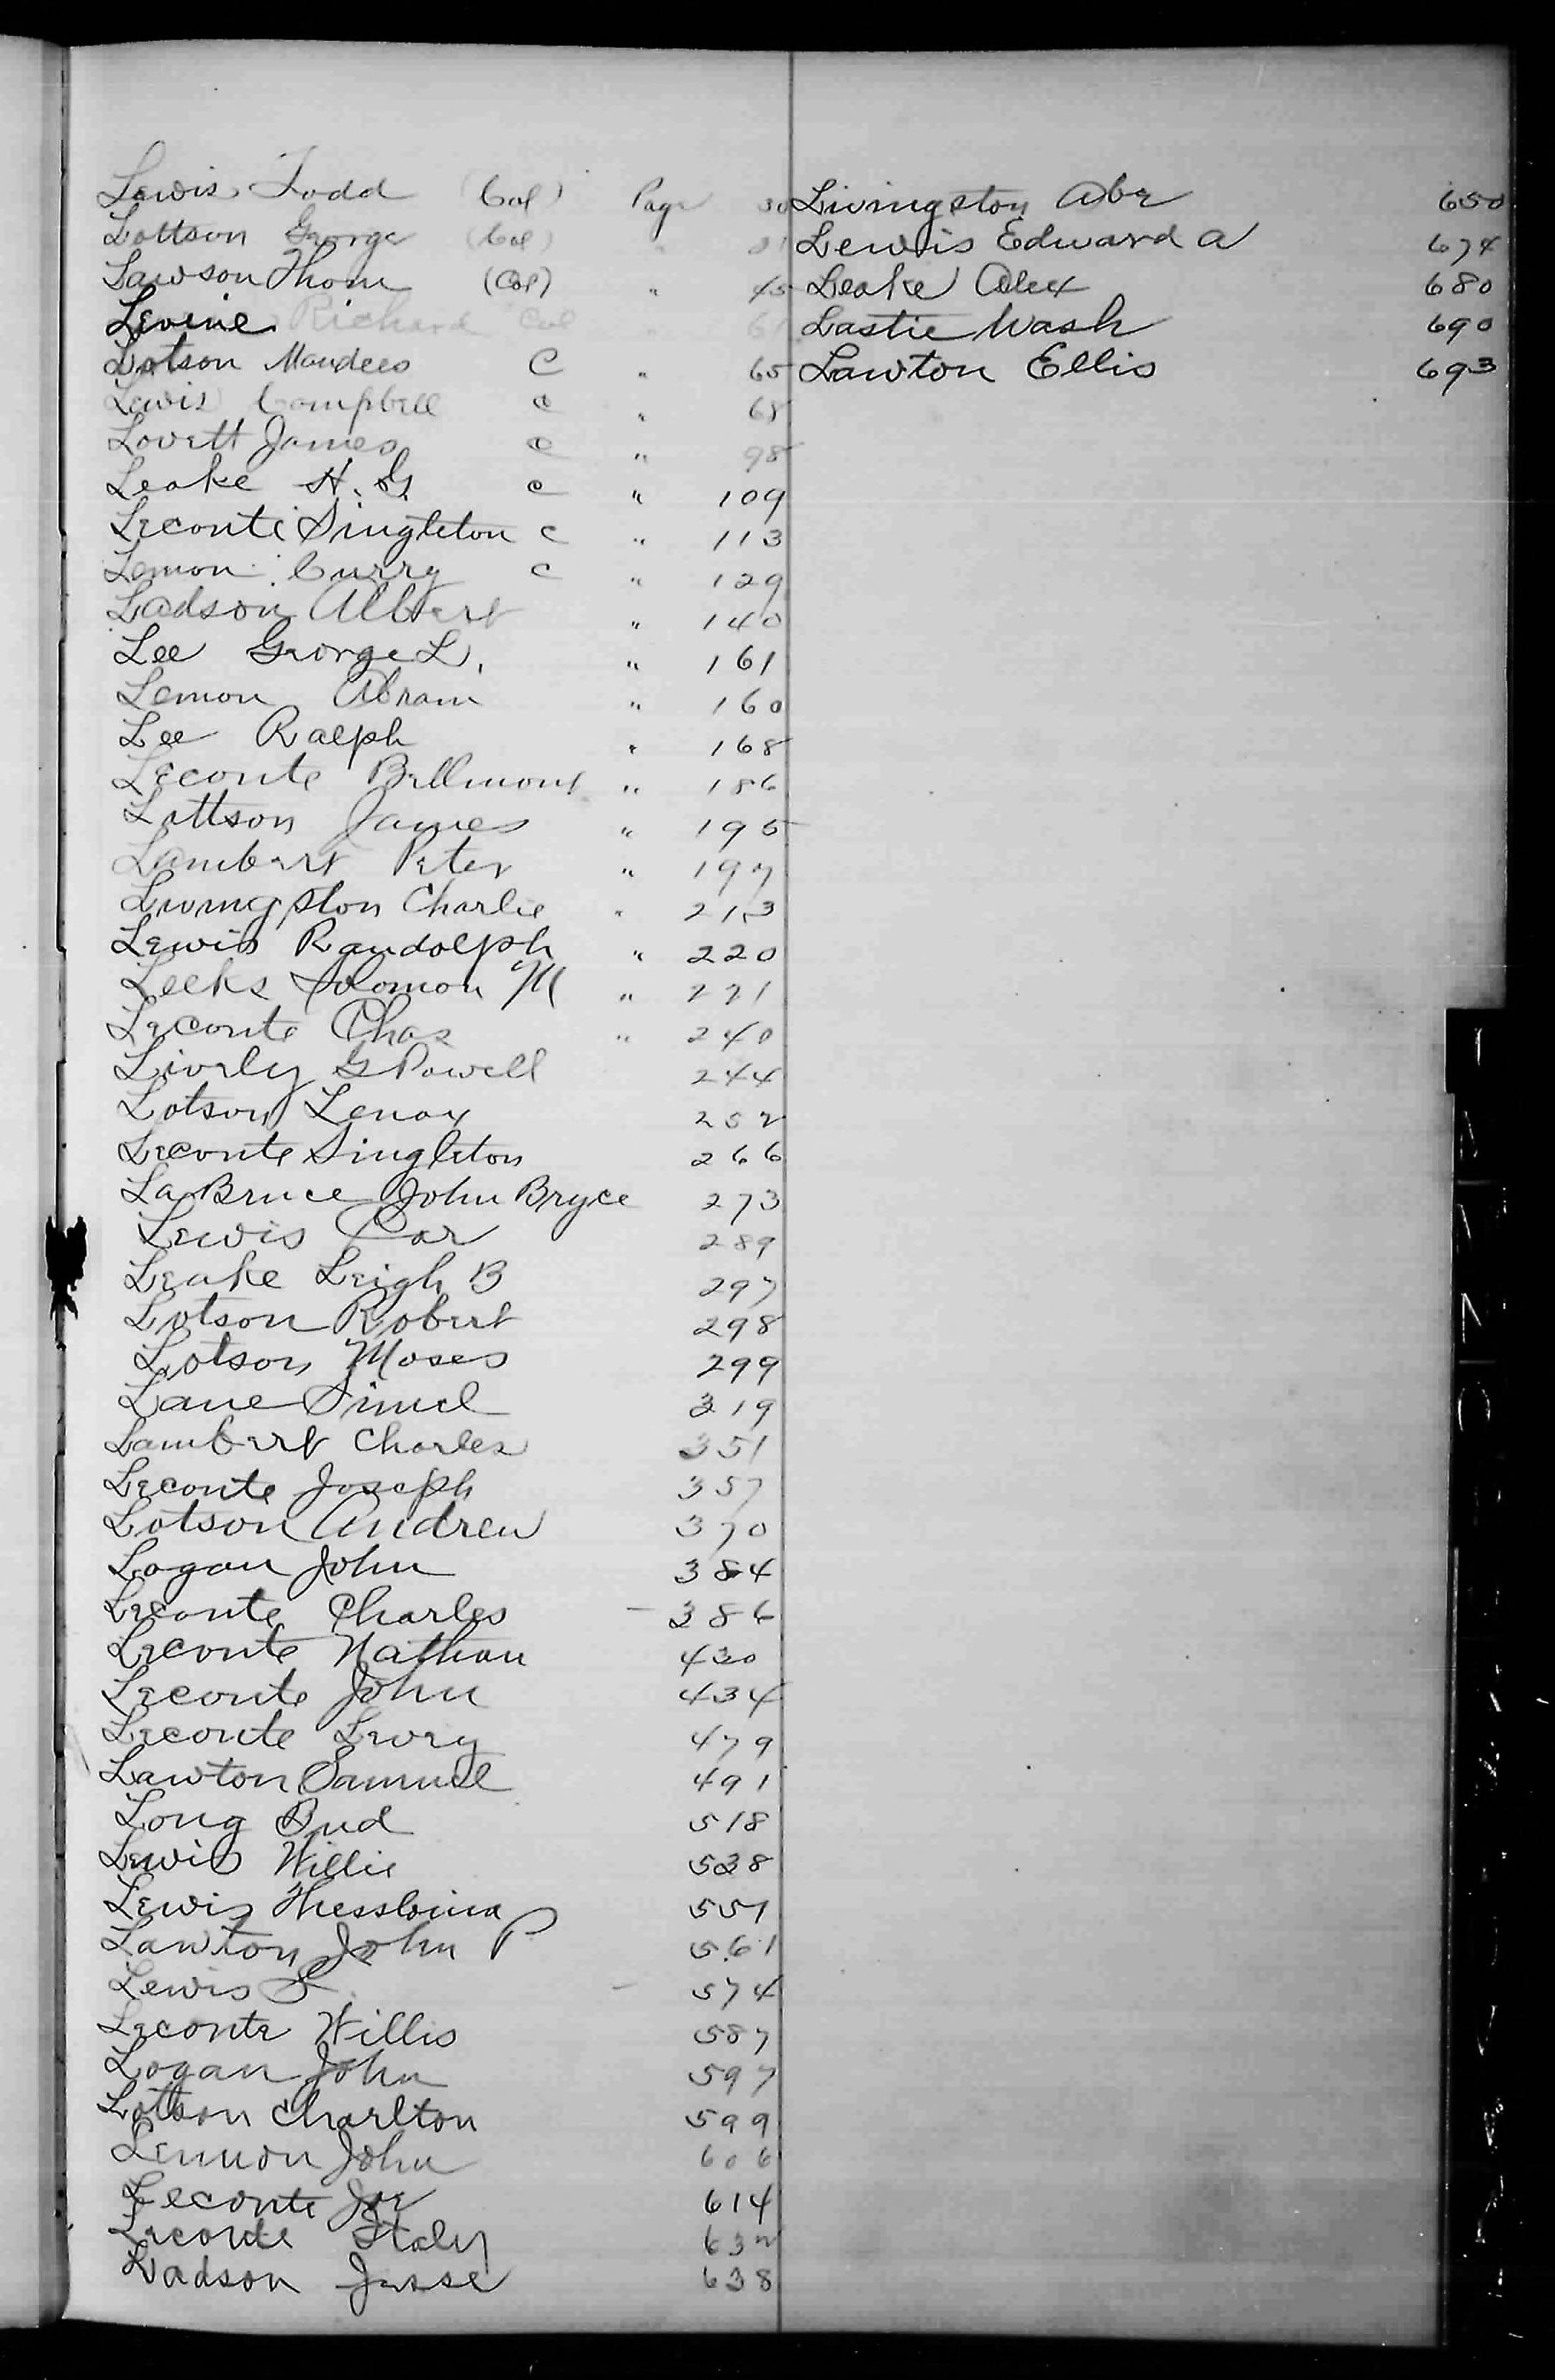 Lewis Todd (Col) Page 30
Lottson George (Col) "
Lawson Thom (Col) " 45
Levine Richard Col 61
Lotson Maudees C " 65
Lewis Campbell c " 68
Lovett James c " 98
Leake H. G. c " 109
Leconte Singleton c " 113
Lemon Curry c " 129
Ladson Albert " 140
Lee George L. " 161
Lemon Abram " 160
Lee Ralph " 168
Leconte Bellmont " 186
Lottson James " 195
Lambert Peter " 197
Livingston Charlie " 213
Lewis Randolph " 220
Leeks Solomon M " 221
Leconte Chas " 240
Lively G Powell 244
Lotson Lenox 252
Leconte Singleton 266
La Bruce John Bryce 273
Lewis 289
Leake Leigh B 297
Lotson Robert 298
Lotson Moses 299
Lane 319
Lambert Charles 351
Leconte Joseph 357
Lotson Andrew 370
Logan John 384
Leconte Charles - 386
Leconte Nathan 430
Leconte John 434
Leconte Levey 479
Lawton Samuel 491
Long Bud 518
Lewis Willie 538
Lewis 551
Lawton John P 561
Lewis S - 574
Leconte Willis 587
Logan John 597
Lottson Charlton 599
Lennon John 606
Leconte Joe 614
Leconte Italy 632
Ladson Jesse 638
Livingston Abe 650
Lewis Edward A 674
Leake Alex 680
Lastie Wash 690
Lawton Ellis 693